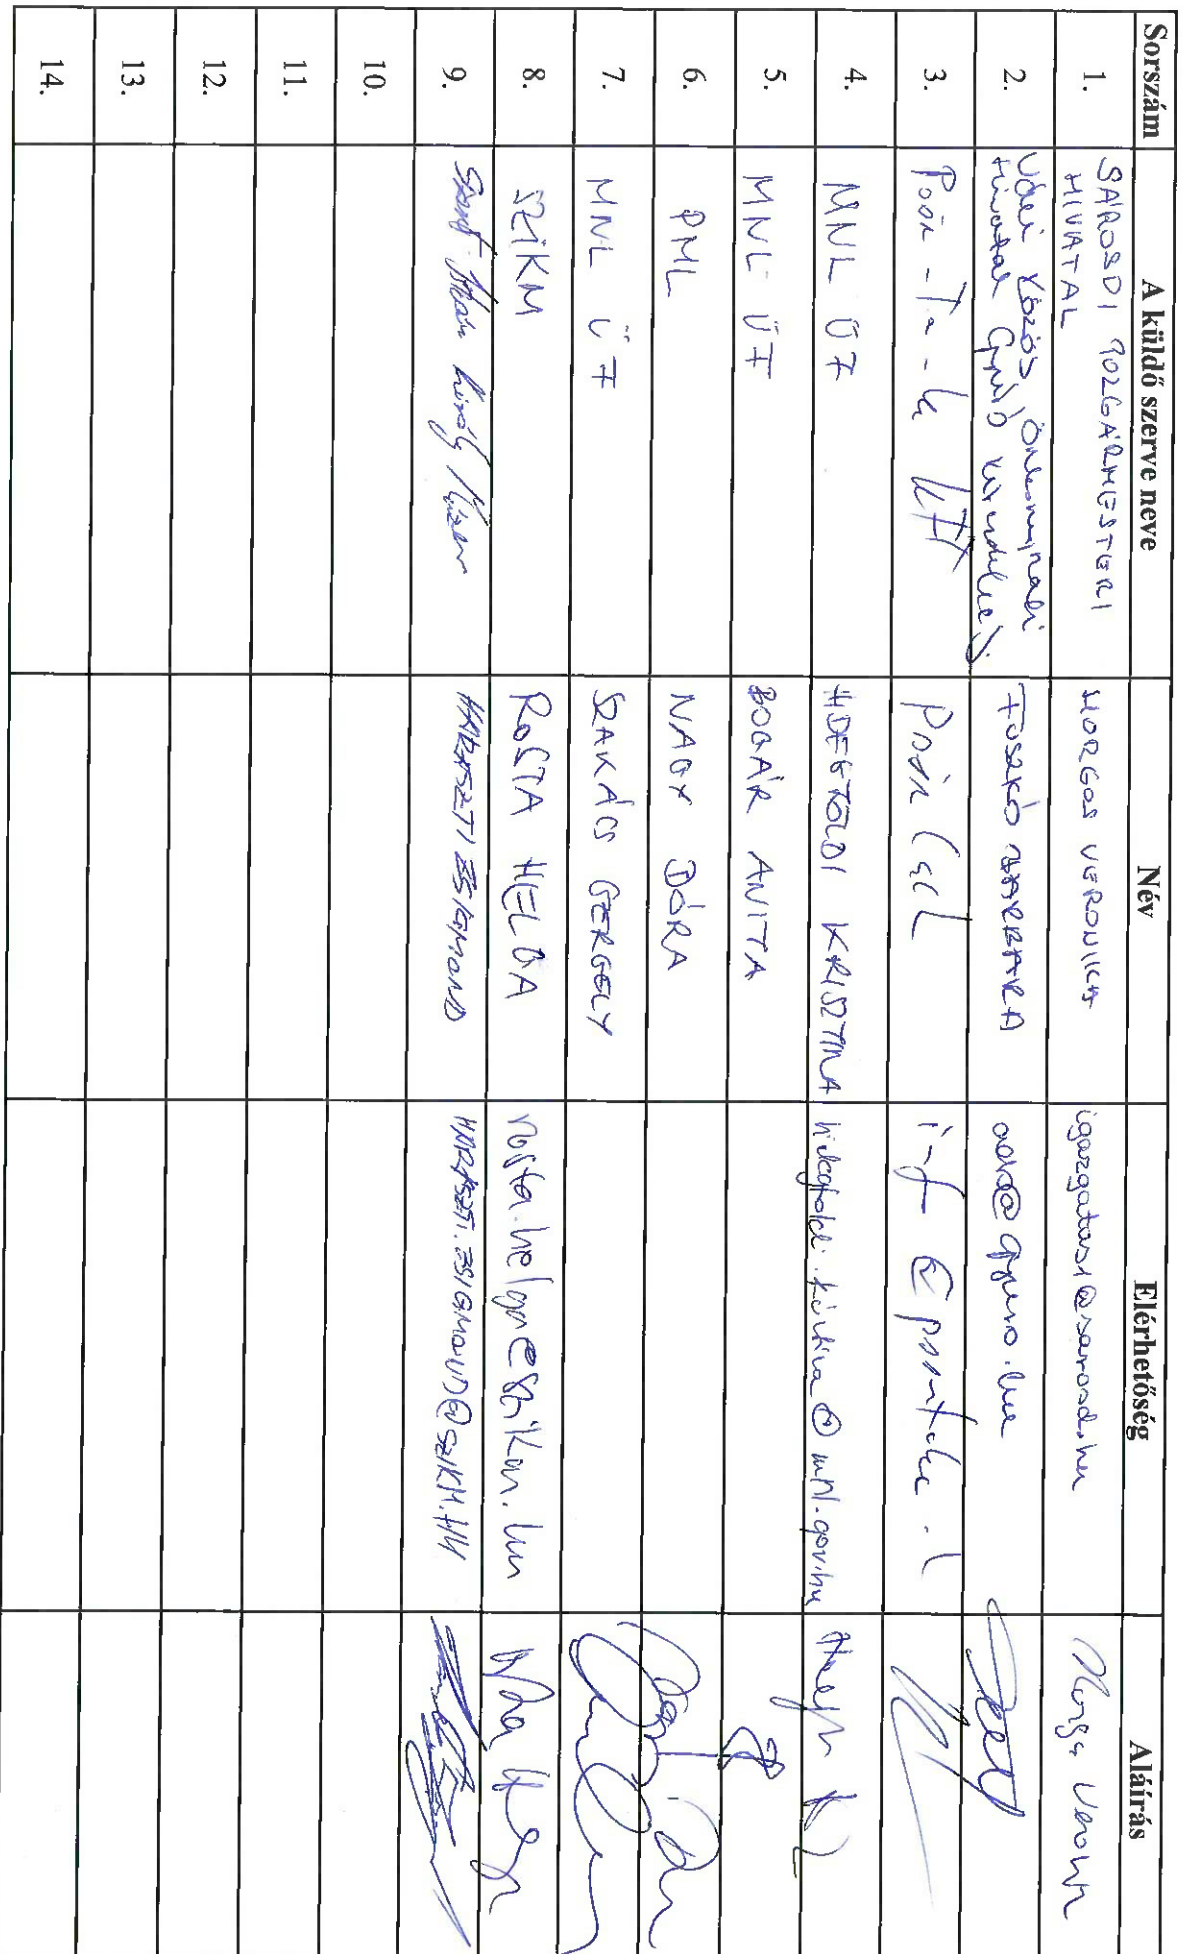 Sorszám A küldő szerve neve Név Elérhetőség Aláírás
1. SÁROSDI POLGÁRMESTERI HIVATAL HORGOS VERONIKA igazgatas1@sarosd.hu
2. Váli Közös Önkormányzati Hivatal Gyúrói Kirendeltség FUSZKÓ BARBARA ado@gyuro.hu
3. Poór-Ta-
4. MNL ÜF HIDEGFÖLDI KRISZTINA hidegfoldi.krisztina@mnl.gov.hu
5. MNL ÜF BOGÁR ANITA
6. PML NAGY DÓRA
7. MNL ÜF SZAKÁCS GERGELY
8. SZIKM ROSTA HELGA rosta.helga@szikm.hu
9. Szent István Király Múzeum HARASZTI ZSIGMOND HARASZTI.ZSIGMOND@SZIKM.HU
10.
11.
12.
13.
14.